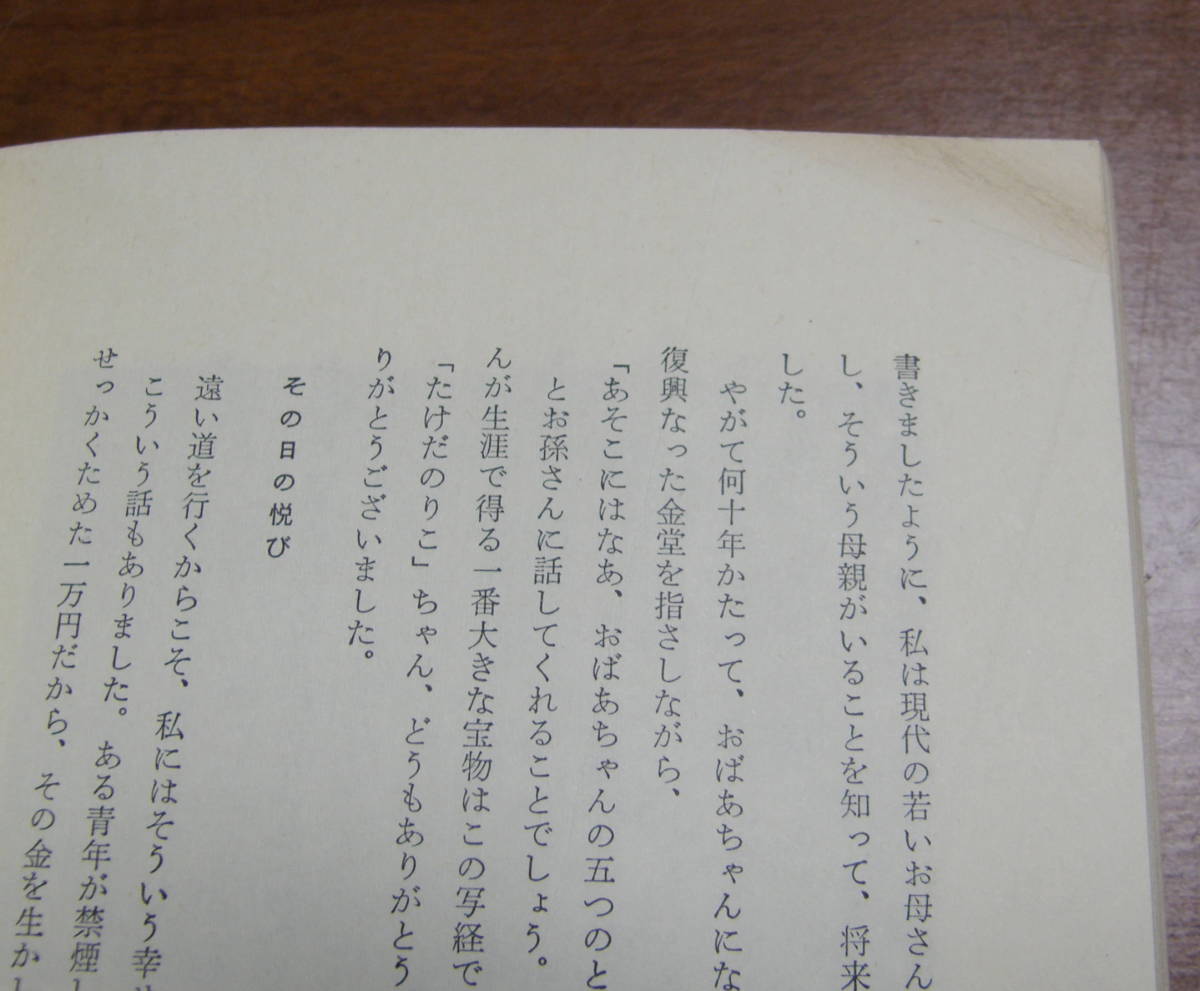 書きましたように、私は現代の若いお母さん
し、そういう母親がいることを知って、将来
した。
やがて何十年かたって、おばあちゃんにな
復興なった金堂を指さしながら、
「あそこにはなあ、おばあちゃんの五つのと
とお孫さんに話してくれることでしょう。
んが生涯で得る一番大きな宝物はこの写経で
「たけだのりこ」ちゃん、どうもありがとう
りがとうございました。
その日の悦び
遠い道を行くからこそ、私にはそういう幸せ
こういう話もありました。ある青年が禁煙し
せっかくためた一万円だから、その金を生かし